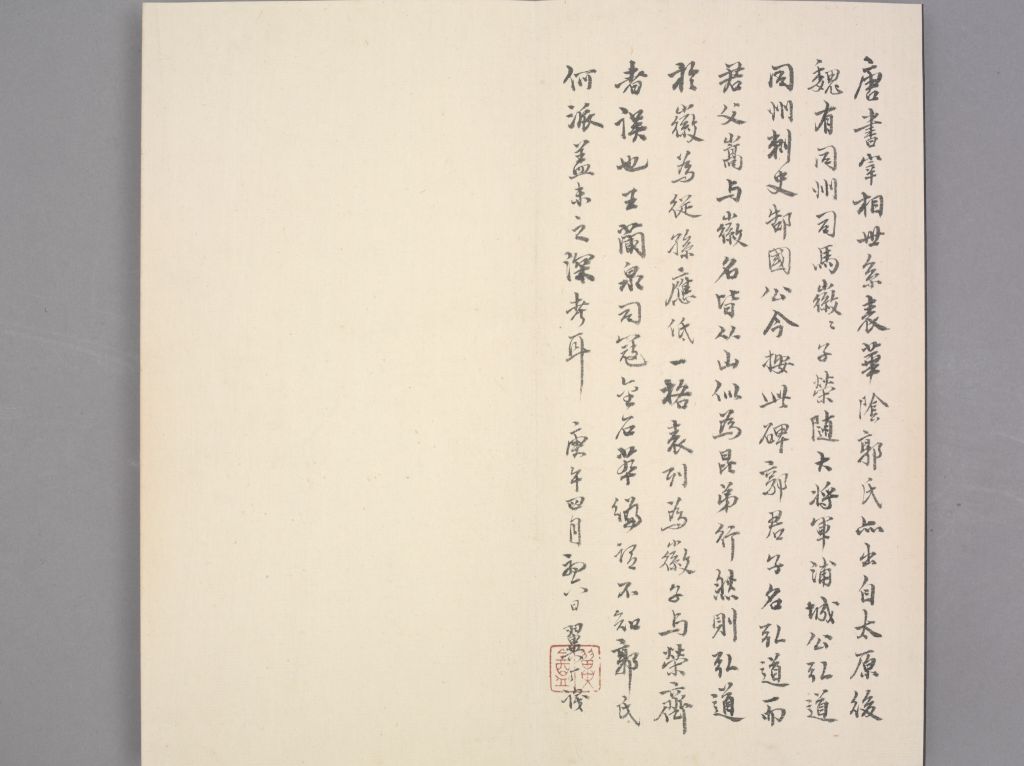 唐書宰相世系表華陰郭氏亦出自太原後
魏有同州司馬徽〻子榮隨大將軍蒲城公弘道
同州刺史郜國公今按此碑郭君子名弘道而
君父嵩与徽名皆从山似為昆弟行然則弘道
於徽為從孫應低一格表列為徽子与榮齊
者誤也王蘭泉司寇金石萃編謂不知郭氏
何派蓋未之深考耳 庚午四月初八日